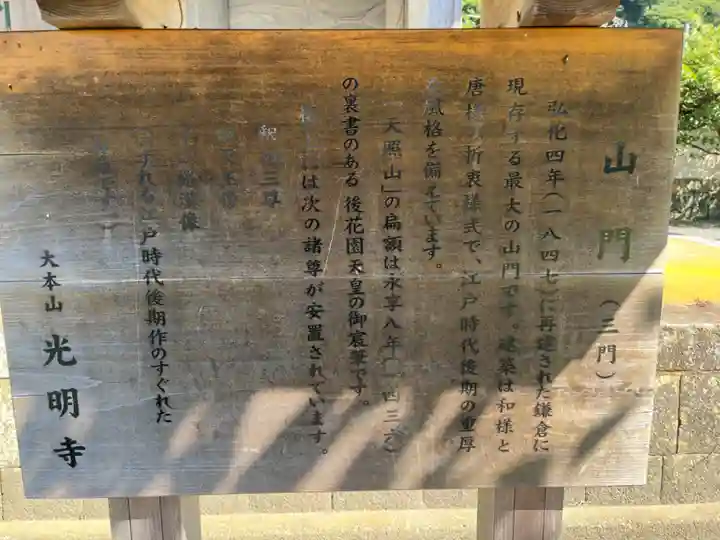 山門(三門)
弘化四年(一八四七)に再建された鎌倉に
現存する最大の山門です。建築は和様と
唐様の折衷様式で、江戸時代後期の重厚
な風格を備えています。
「天照山」の扁額は永享八年(一四三六)
の裏書のある後花園天皇の御宸筆です。
には次の諸尊が安置されています。
釈 三尊
四天王像
羅漢像
いずれも江戸時代後期作のすぐれた
です。
大本山 光明寺